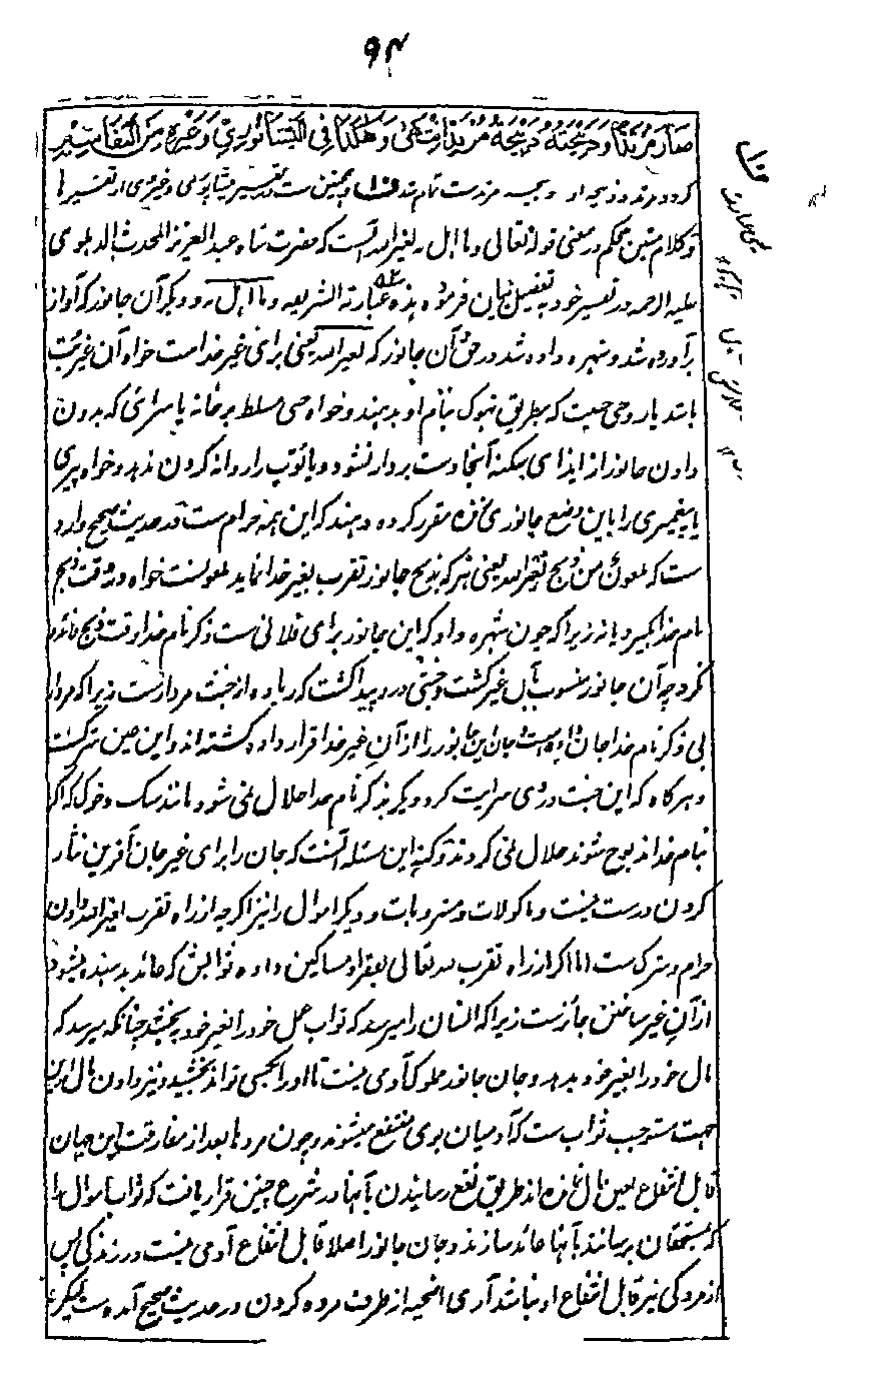 ۹۴
صَارَ مُرْتَدًّا وَذَبِيحَتُهُ ذَبِيحَةُ مُرْتَدٍّ انتهى وَهٰكَذَا فِي النيسابوري وَغَيْرِهِ مِنَ التَّفَاسِيْرِ
گردد مرتد و ذبیحه او ذبیحه مرتدست تمام شد و همچنین ست در تفسیر نیشاپوری و غیره از تفسیرها
و کلام متین محکم در معنی قوله تعالی وما اهل به لغیر الله آنست که حضرت شاه عبد العزیز المحدث الدهلوی
علیه الرحمه در تفسیر خود به تفصیل بیان فرموده بذه عبارته الشریفه وما اهل به و دیگر آن جانور که آواز
برآورده شد و شهره داده شد در حق آن جانور که لغیر الله یعنی برای غیر خداست خواه آن غیر بت
باشد یا روحی خبیث که بطریق بهوگ بنام او بدهند و خواه جنی مسلط بر خانه یا سرائی که بدون
دادن جانور از ایذای سکنه آنجا دست بردار نشود و یا توپ را روانه کردن ندهد و خواه پیری
یا پیغمبری را باین وضع جانوری زنده مقرر کرده دهند که این همه حرام ست و در حدیث صحیح وارد
ست که ملعون من ذبح لغیر الله یعنی هر که بذبح جانور تقرب بغیر خدا نماید ملعونست خواه در وقت ذبح
نام خدا بگیرد یا نه زیرا که چون شهره داد که این جانور برای فلانی ست ذکر نام خدا وقت ذبح فائده
نکرد چه آن جانور منسوب بآن غیر گشت و خبثی درو پیدا گشت که زیاده از خبث مردارست زیرا که مردار
بی ذکر نام خدا جان داده است و جان این جانور را از آن غیر خدا قرار داده کشته اند و این عین شرک ست
و هرگاه که این خبث در وی سرایت کرد دیگر بذکر نام خدا حلال نمی شود مانند سگ و خوک که اگر
بنام خدا مذبوح شوند حلال نمی گردند و کنه این مسئله آنست که جان را برای غیر جان آفرین نثار
کردن درست نیست و ماکولات و مشروبات و دیگر اموال را نیز اگرچه از راه تقرب لغیر الله دادن
حرام و شرک ست اما اگر از راه تقرب الله تعالی بفقرا و مساکین داده ثوابش که عائد بدهنده میشود
از آن غیر ساختن جائزست زیرا که انسان را میرسد که ثواب عمل خود را بغیر خود بخشد چنانکه میرسد که
مال خود را بغیر خود بدهد و جان جانور مملوک آدمی نیست تا اورا بکسی تواند بخشید و نیز دادن مال ازین
جهت مستوجب ثواب ست که آدمیان بوی منتفع میشوند و چون مردها بعد از مفارقت این جهان
قابل انتفاع بعین مال نمانده اند طریق نفع رسانیدن بآنها در شرع چنین قرار یافت که ثواب اموال را
که بمستحقان برسانند بآنها عائد سازند و جان جانور اصلا قابل انتفاع آدمی نیست در زندگی پس
از مردگی نیز قابل انتفاع او نباشد آری اضحیه از طرف مرده کردن در حدیث صحیح آمده ست لیکن